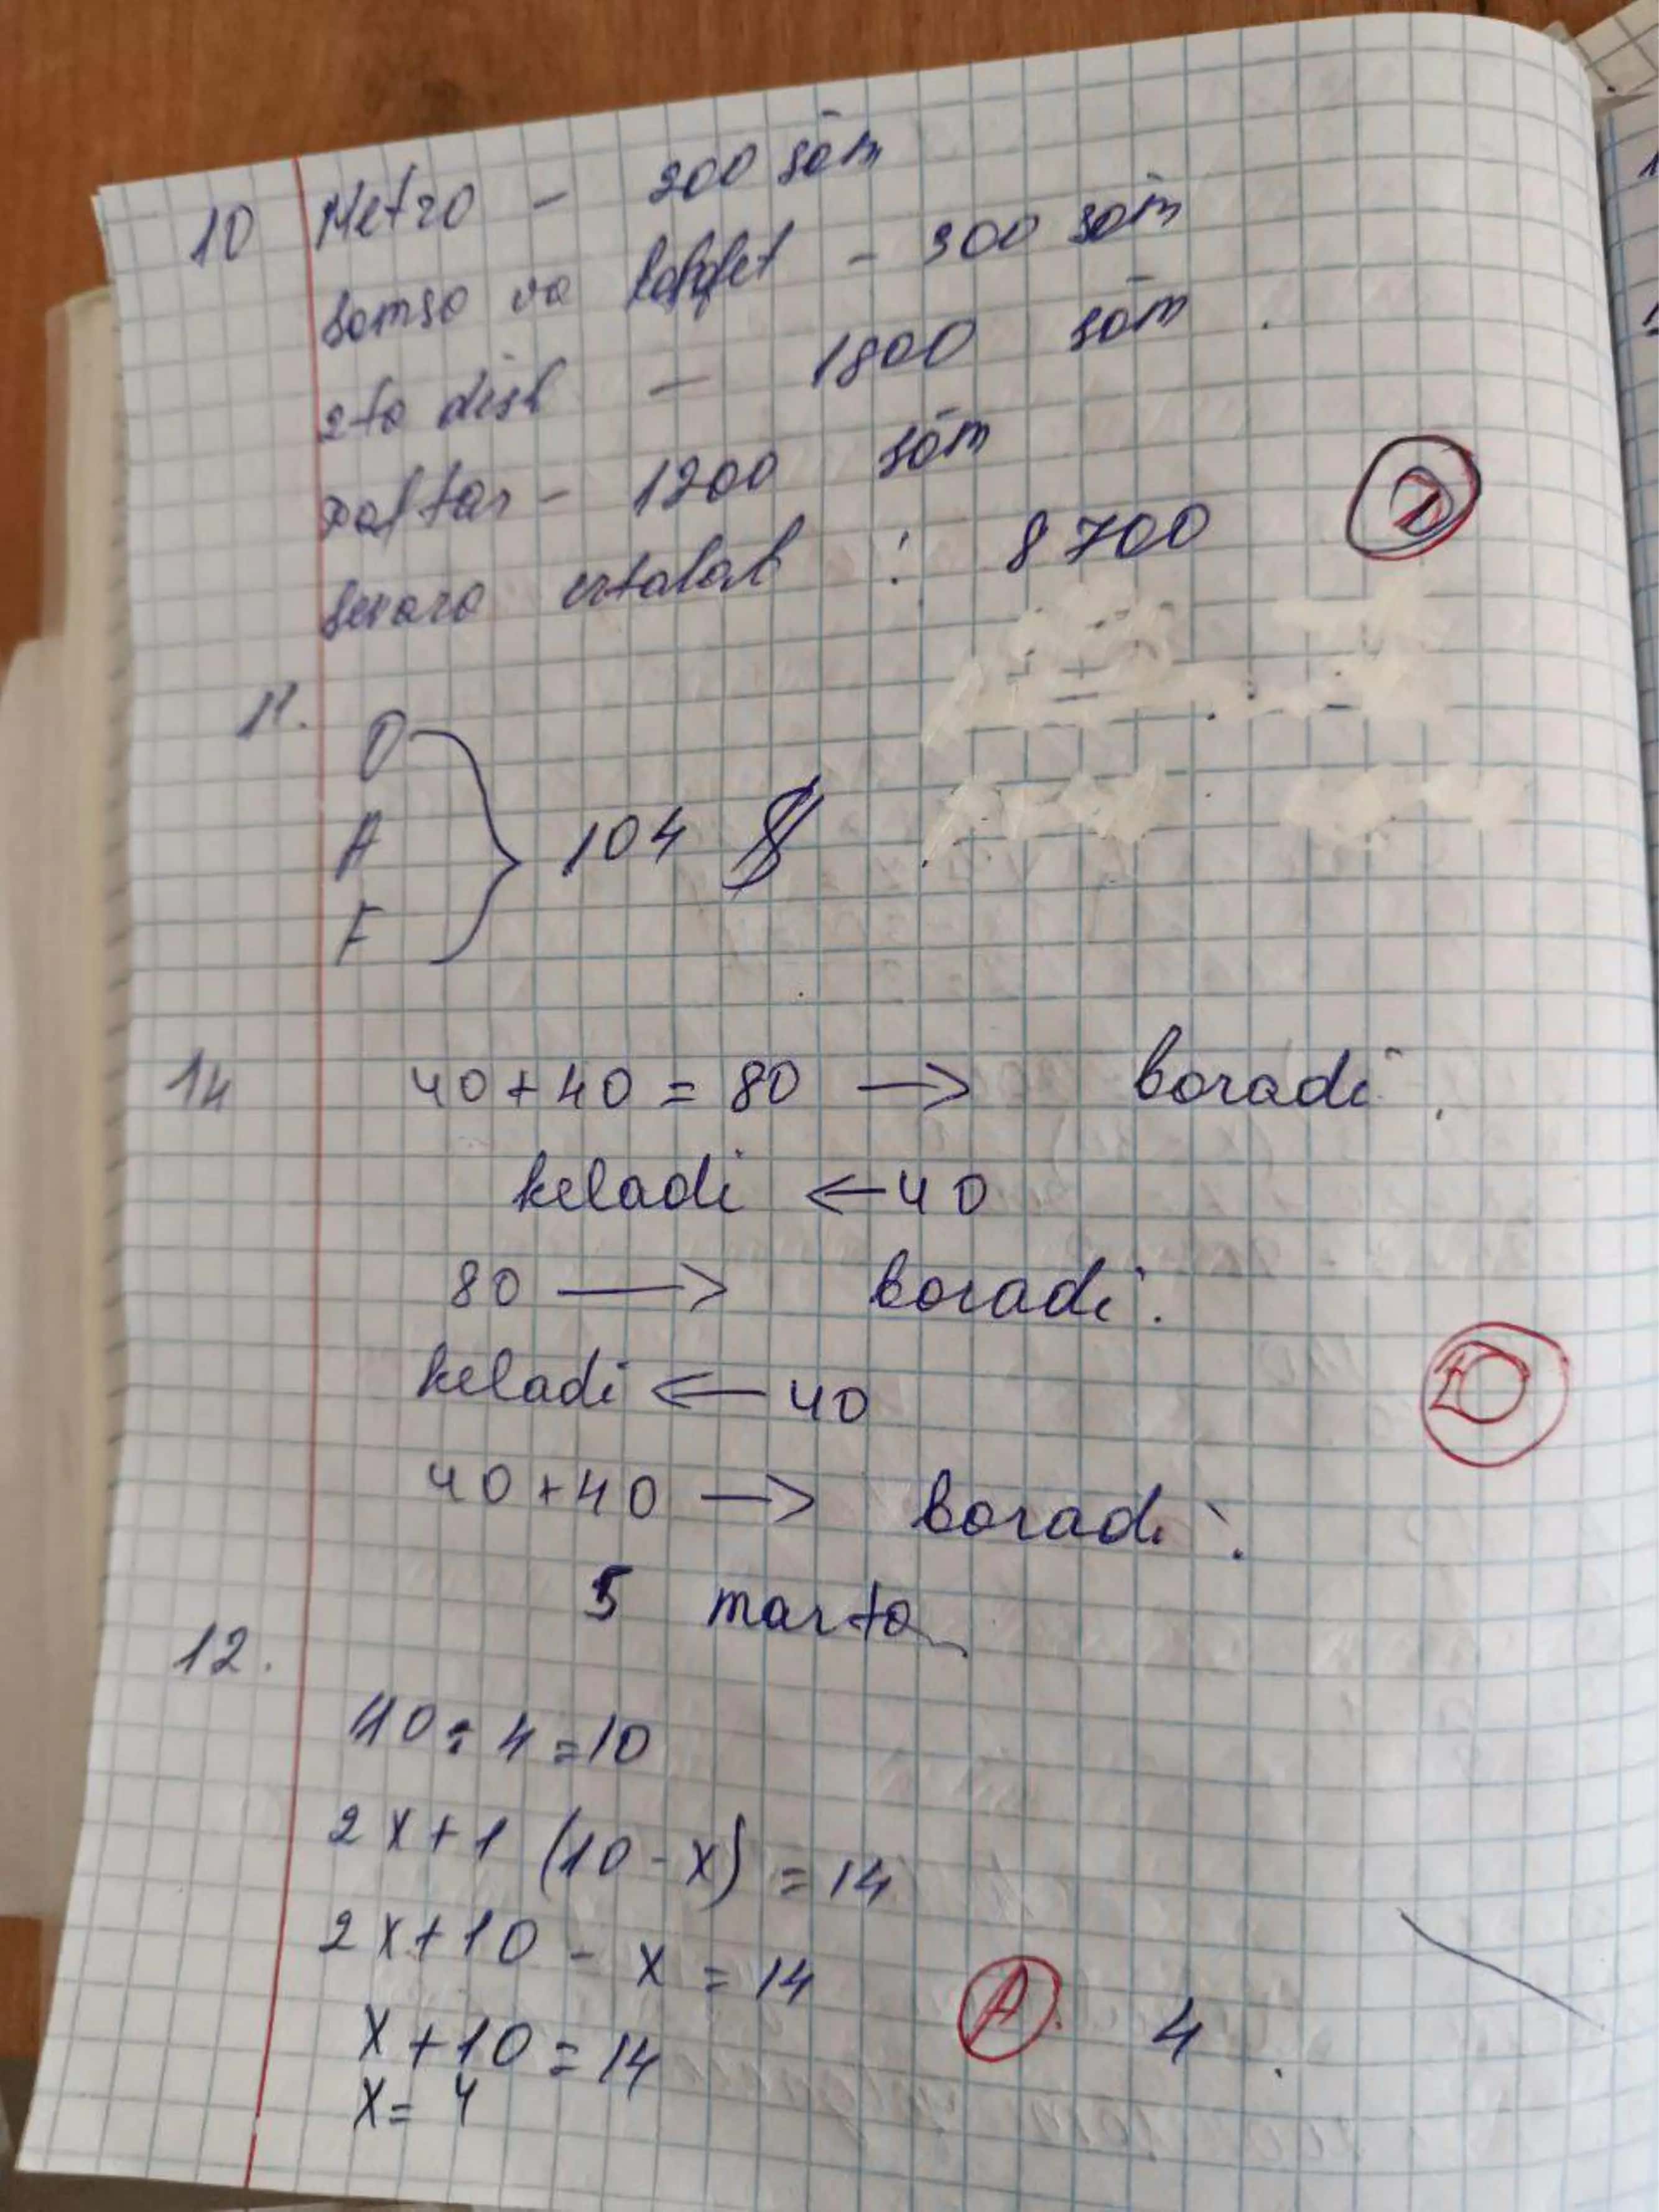 10 Metro - 200 sōm
somsa va kofget - 900 sōm
2ta disk - 1800 sōm
Daftar - 1200 sōm
sevara ertalab : 8700
11.
O
A
F
104 $
14 40 + 40 = 80 → boradi.
keladi ← 40
80 → boradi.
keladi ← 40
40 + 40 → boradi.
5 marta
12.
40 : 4 = 10
2x + 1 (10 - x) = 14
2x + 10 - x = 14
x + 10 = 14
A. 4.
x = 4